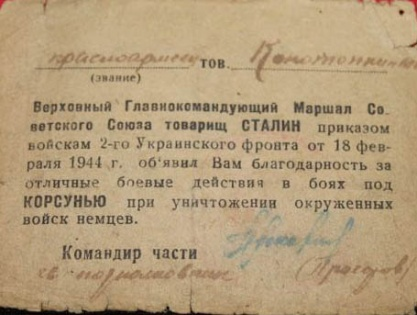 красноармейцу тов.
(звание)
Верховный Главнокомандующий Маршал Со-
ветского Союза товарищ СТАЛИН приказом
войскам 2-го Украинского фронта от 18 фев-
раля 1944 г. об'явил Вам благодарность за
отличные боевые действия в боях под
КОРСУНЬЮ при уничтожении окруженных
войск немцев.
Командир части
гв. подполковник